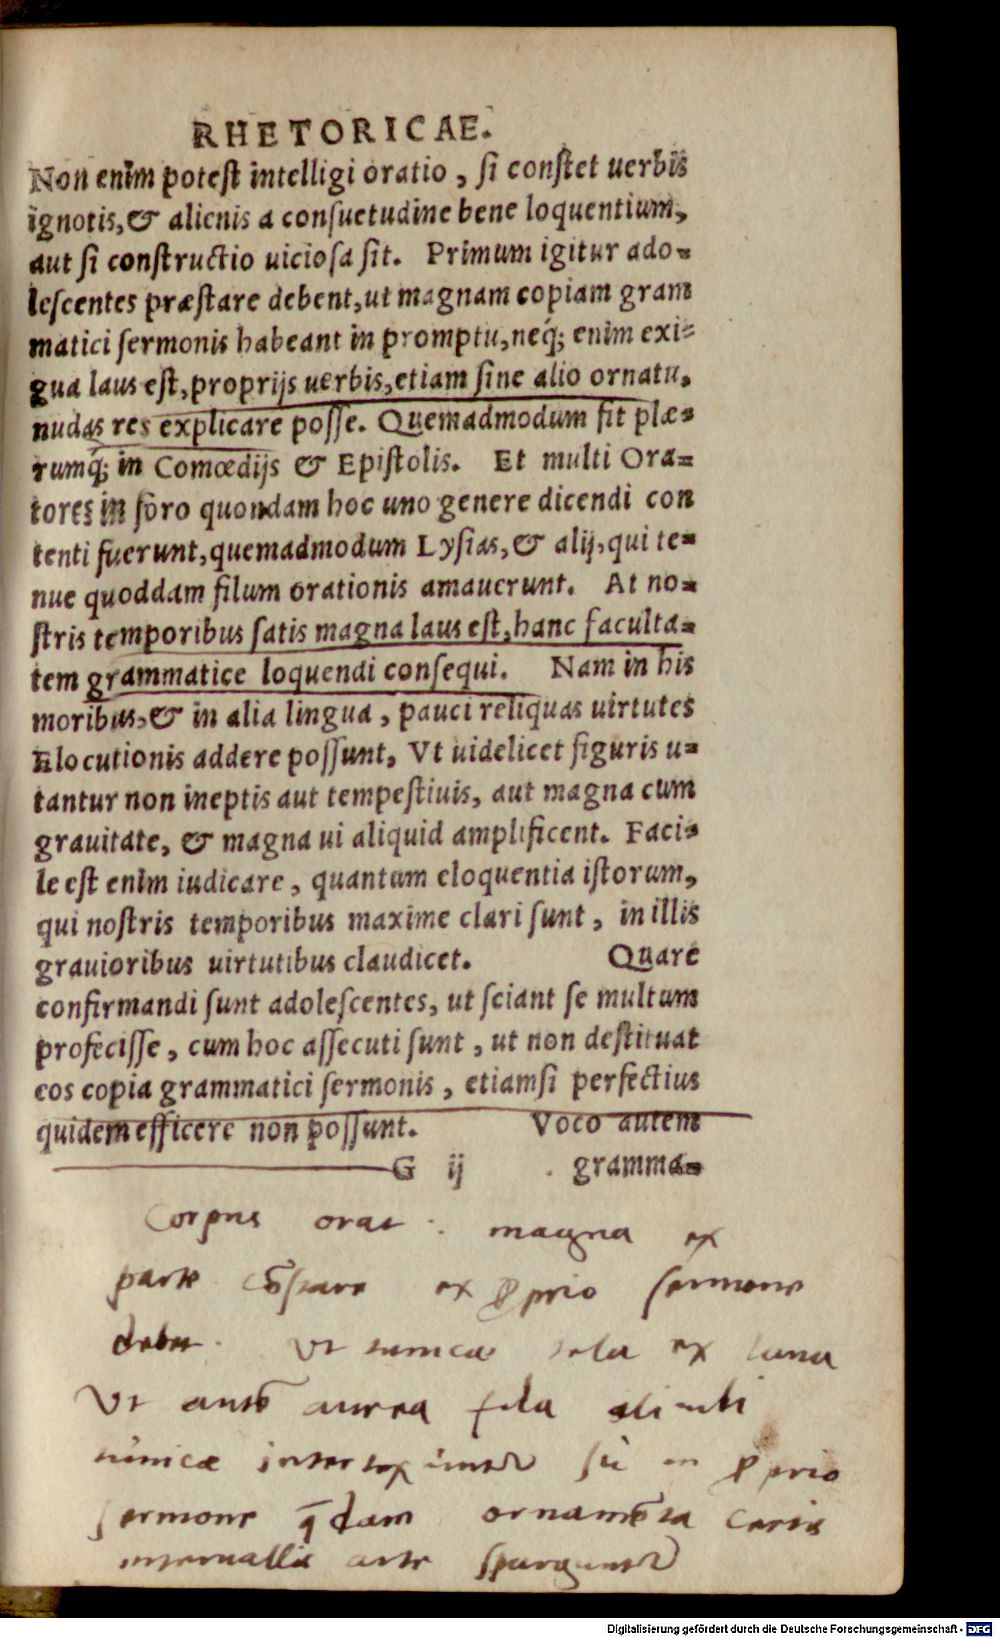 RHETORICAE.
Non enim potest intelligi oratio, si constet uerbis
ignotis, & alienis a consuetudine bene loquentium,
aut si constructio uiciosa sit. Primum igitur ado-
lescentes præstare debent, ut magnam copiam gram
matici sermonis habeant in promptu, neq́; enim exi-
gua laus est, proprijs uerbis, etiam sine alio ornatu,
nudas res explicare posse. Quemadmodum fit plæ-
rumq́; in Comœdijs & Epistolis. Et multi Ora-
tores in foro quondam hoc uno genere dicendi con
tenti fuerunt, quemadmodum Lysias, & alij, qui te-
nue quoddam filum orationis amauerunt. At no-
stris temporibus satis magna laus est, hanc faculta-
tem grammatice loquendi consequi. Nam in his
moribus, & in alia lingua, pauci reliquas uirtutes
Elocutionis addere possunt, Vt uidelicet figuris u-
tantur non ineptis aut tempestiuis, aut magna cum
grauitate, & magna ui aliquid amplificent. Faci-
le est enim iudicare, quantum eloquentia istorum,
qui nostris temporibus maxime clari sunt, in illis
grauioribus uirtutibus claudicet. Quare
confirmandi sunt adolescentes, ut sciant se multum
profecisse, cum hoc assecuti sunt, ut non destituat
eos copia grammatici sermonis, etiamsi perfectius
quidem efficere non possunt. Voco autem
G ij gramma-
Corpus orat: magna ex
parte cõstare ex ꝓprio sermone
debet. Vt tunica tela ex lana
Vt autẽ aurea fila alicubi
tunicæ intertexuntur sic in ꝓprio
sermone q̄dam ornamẽta certis
interuallis arte sparguntur
Digitalisierung gefördert durch die Deutsche Forschungsgemeinschaft - DFG